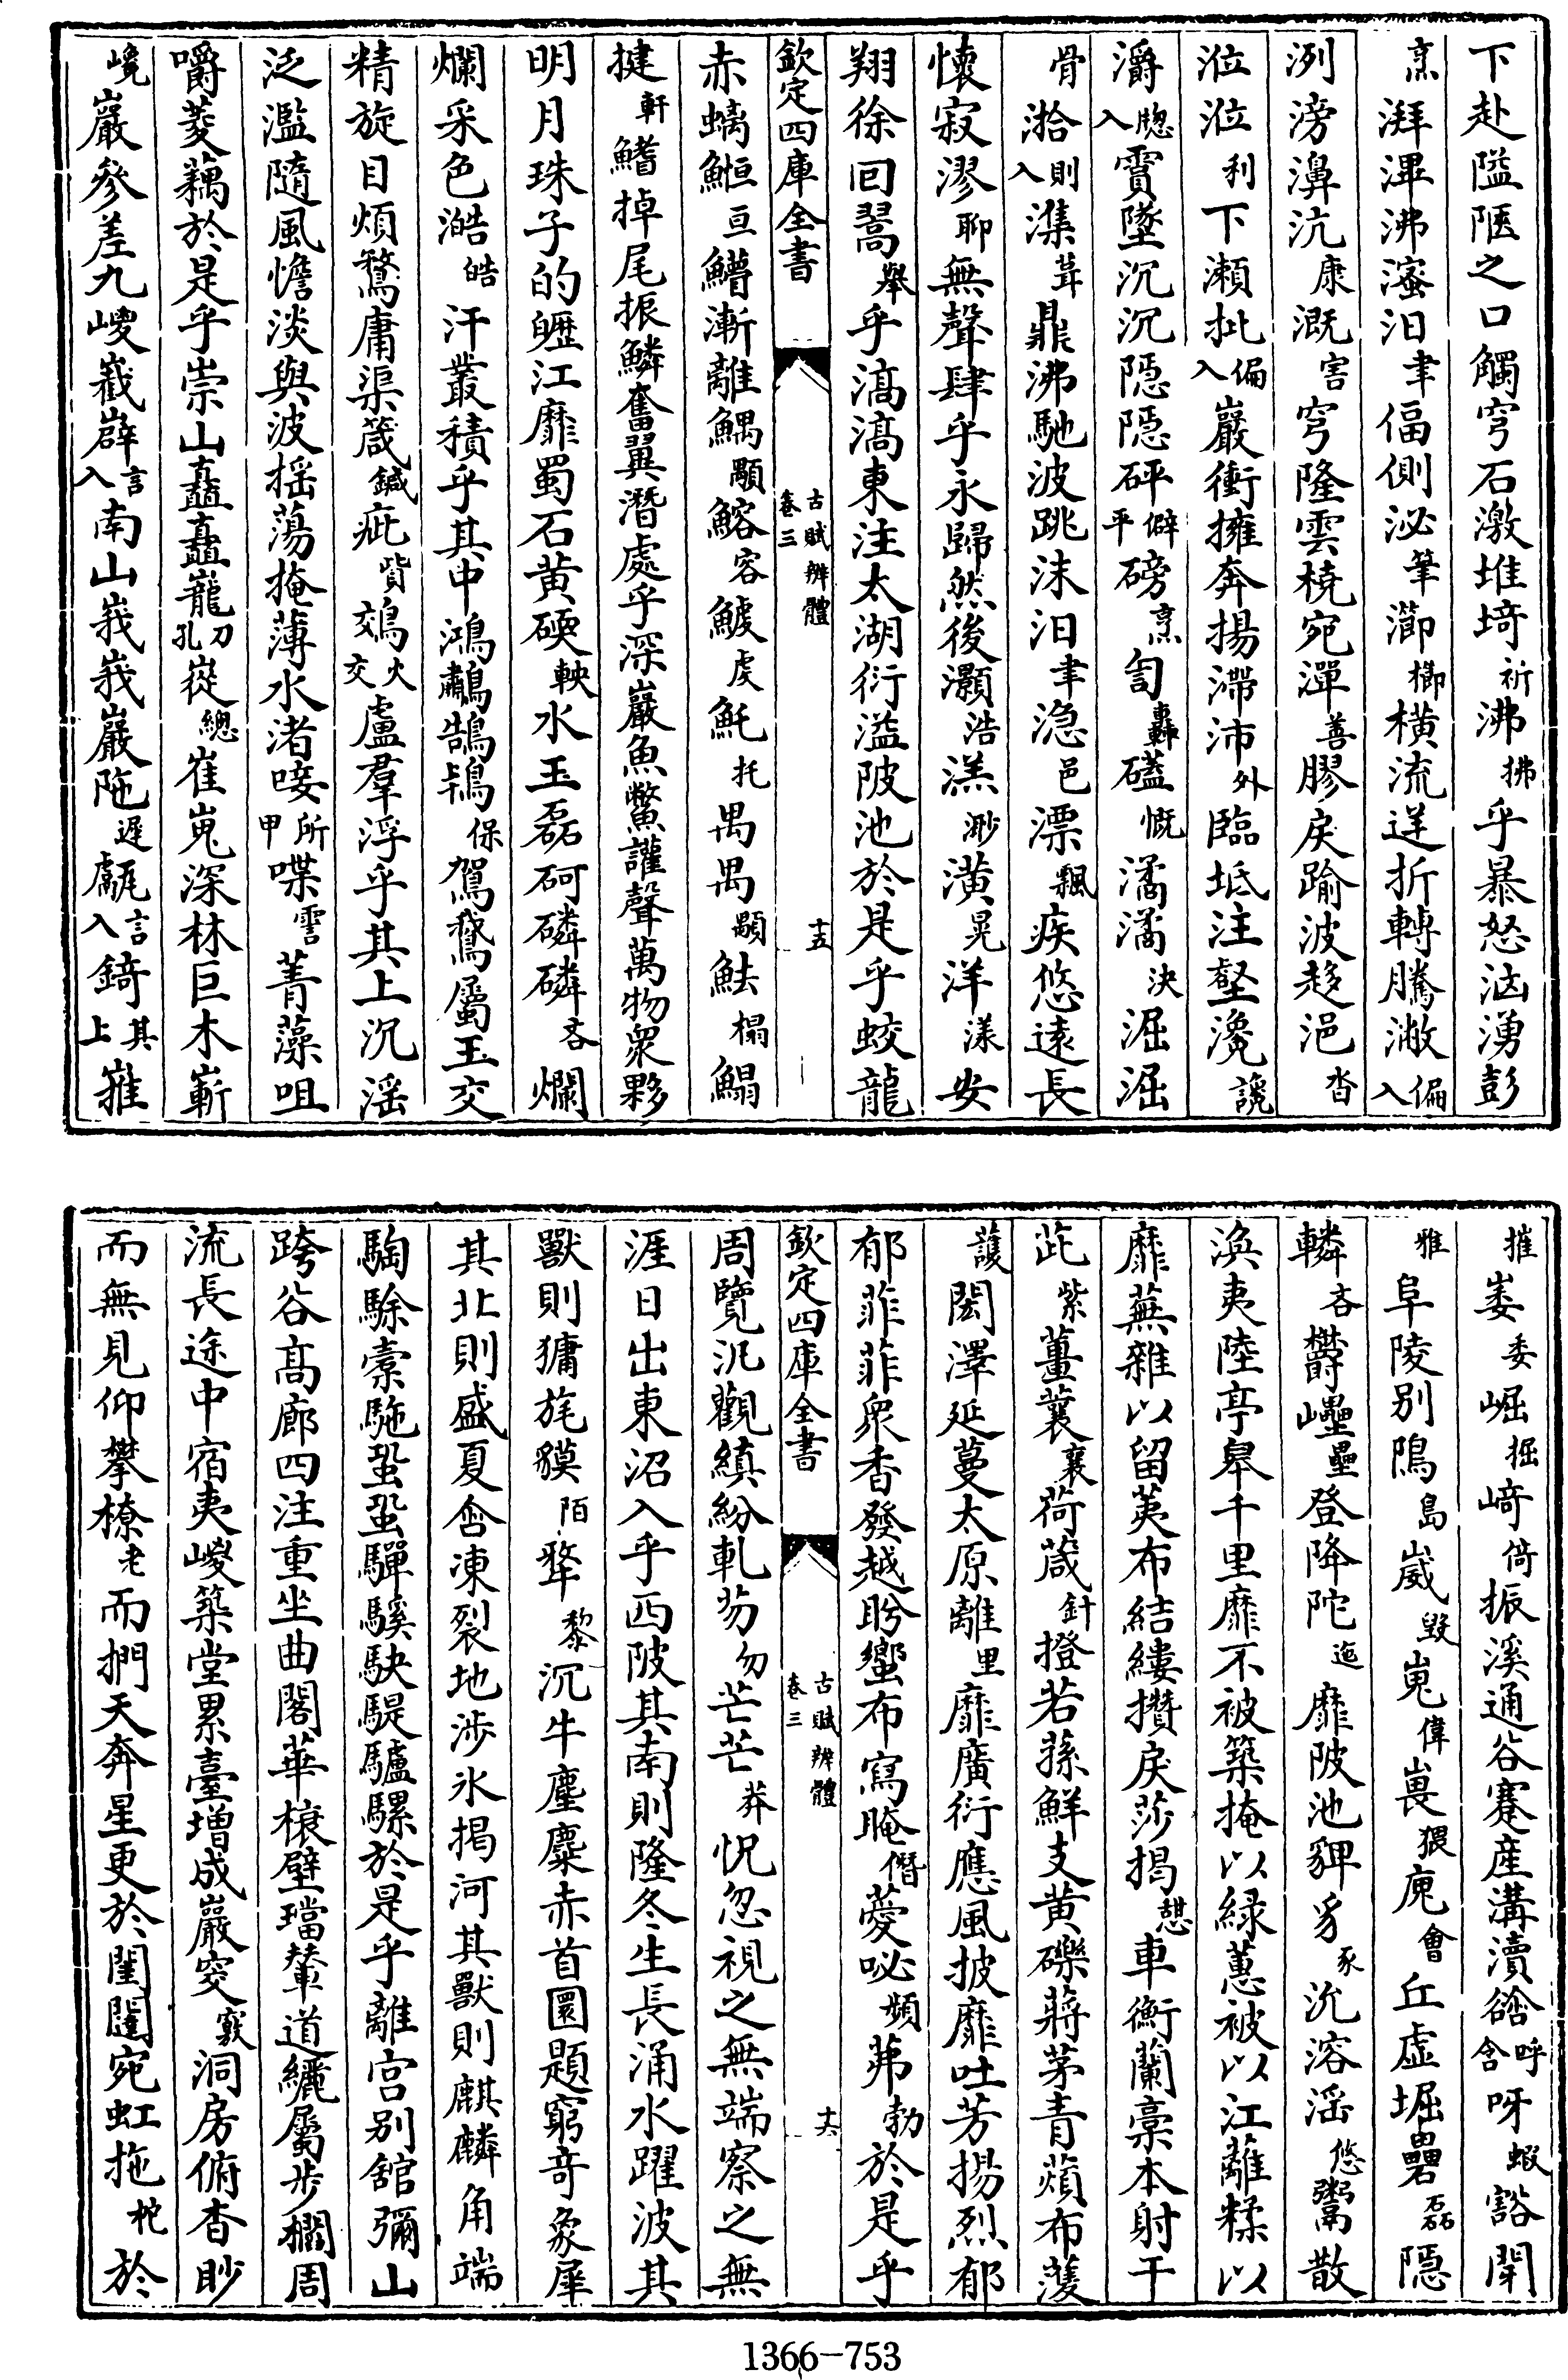 下赴隘陿之口觸穹石激堆埼祈沸拂乎暴怒洶湧彭
烹湃滭沸滵汩聿偪側泌筆瀄櫛横流逆折轉騰潎偏入
洌滂濞沆康溉害穹隆雲橈宛潬善膠戾踰波趍浥沓
涖涖利下瀨批偏入巖衝擁奔揚滯沛外臨坻注壑瀺讒
灂牕入霣墜沉沉隱隱砰僻平磅烹訇轟礚慨潏潏決淈淈
骨湁則入潗葺鼎沸馳波跳沫汩聿㴔邑漂飄疾悠遠長
懷寂漻聊無聲肆乎永歸然後灝浩溔渺潢晃洋漾安
翔徐回翯翬乎滈滈東注太湖衍溢陂池於是乎蛟龍
欽定四庫全書 古賦辨體 卷三 十五
赤螭䱭亘䲛漸離鰅顒鰫容鰬虔魠托禺禺顒魼榻鰨
揵軒鰭掉尾振鱗奮翼潛處乎深巖魚鱉讙聲萬物衆夥
明月珠子的皪江靡蜀石黄碝輭水玉磊砢磷磷吝爛
爛采色澔皓汗叢積乎其中鴻鷫鵠鴇保鴐鵝屬玉交
精旋目煩鶩庸渠箴鍼疵貲鵁火交盧羣浮乎其上沉淫
泛濫隨風憺淡與波揺蕩掩薄水渚唼所甲喋霅菁藻咀
嚼菱藕於是乎崇山矗矗巃力孔嵸總崔嵬深林巨木嶄
巉巖參差九嵕嶻嶭言入南山峩峩巖陁遟甗言入錡其上嶊
摧崣委崛掘崎倚振溪通谷蹇産溝瀆谽呼含呀蝦豁閜
雅阜陵别隝島崴毁嵬偉㟪猥廆會丘虚堀礨磊隱
轔吝鬱㠥壘登降陁迤靡陂池貏豸豕沇溶淫悠鬻散
渙夷陸亭皋千里靡不被築掩以緑蕙被以江蘺糅以
靡蕪雜以留荑布結縷攢戾莎揭朅車衡蘭槀本射干
茈紫薑蘘襄荷葴針橙若蓀鮮支黄礫蔣茅青薠布濩
護閎澤延蔓太原離里靡廣衍應風披靡吐芳揚烈郁
郁菲菲衆香發越肸蠁布寫晻僭薆咇頻茀勃於是乎
欽定四庫全書 古賦辨體 卷三 十六
周覽汎觀縝紛軋芴勿芒芒莽怳忽視之無端察之無
涯日出東沼入乎西陂其南則隆冬生長涌水躍波其
獸則㺎旄貘陌犛黎沉牛麈麋赤首圜題窮奇象犀
其北則盛夏含凍裂地渉氷揭河其獸則麒麟角端
騊駼橐駞蛩蛩驒騱駃騠驢騾於是乎離宫别舘彌山
跨谷高廊四注重坐曲閣華榱壁璫輦道纚屬步櫩周
流長途中宿夷嵕築堂累臺增成巖窔竅洞房俯杳眇
而無見仰攀橑老而捫天奔星更於閨闥宛虹拖柁於
1366-753